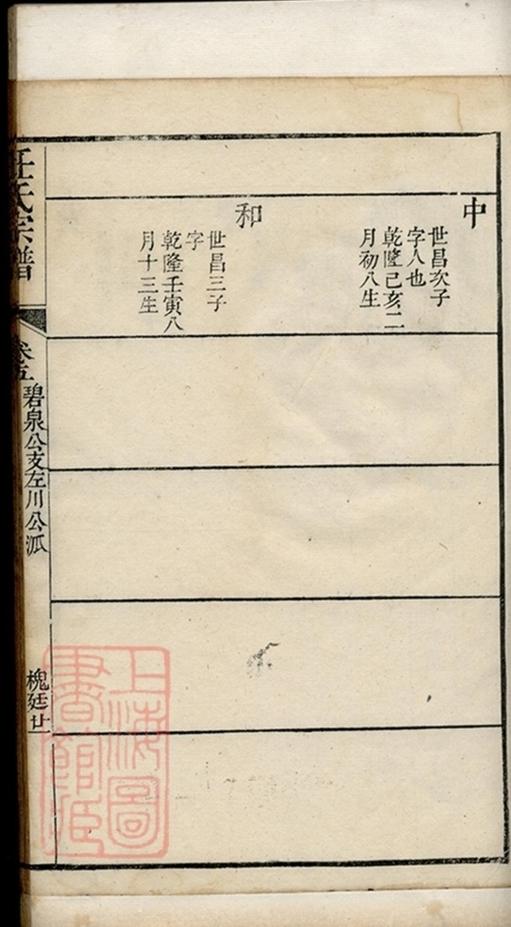 中
世昌次子
字人也
乾隆己亥二
月初八生
和
世昌三子
字
乾隆壬寅八
月十三生
任氏宗譜
卷五
碧泉公支左川公派
槐廷
上海圖
書館